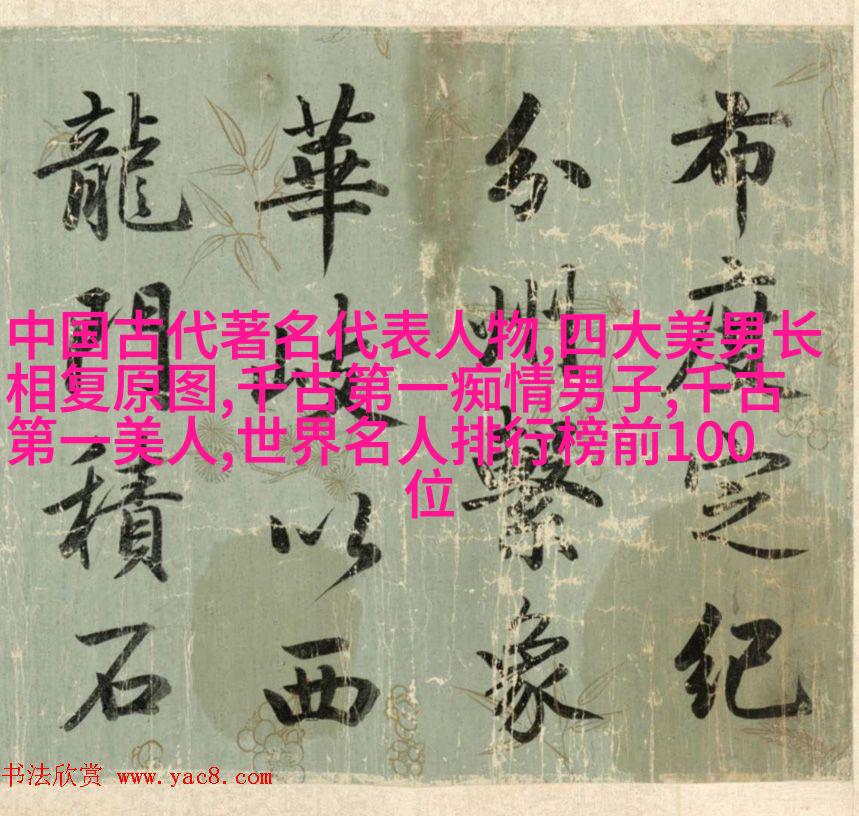 布度定紀
分州繫象
華以西
龍門積石
中国古代著名代表人物,四大美男长
相复原图,千古第一痴情男子,千古
第一美人,世界名人排行榜前100
位
书法欣赏 www.yac8.com